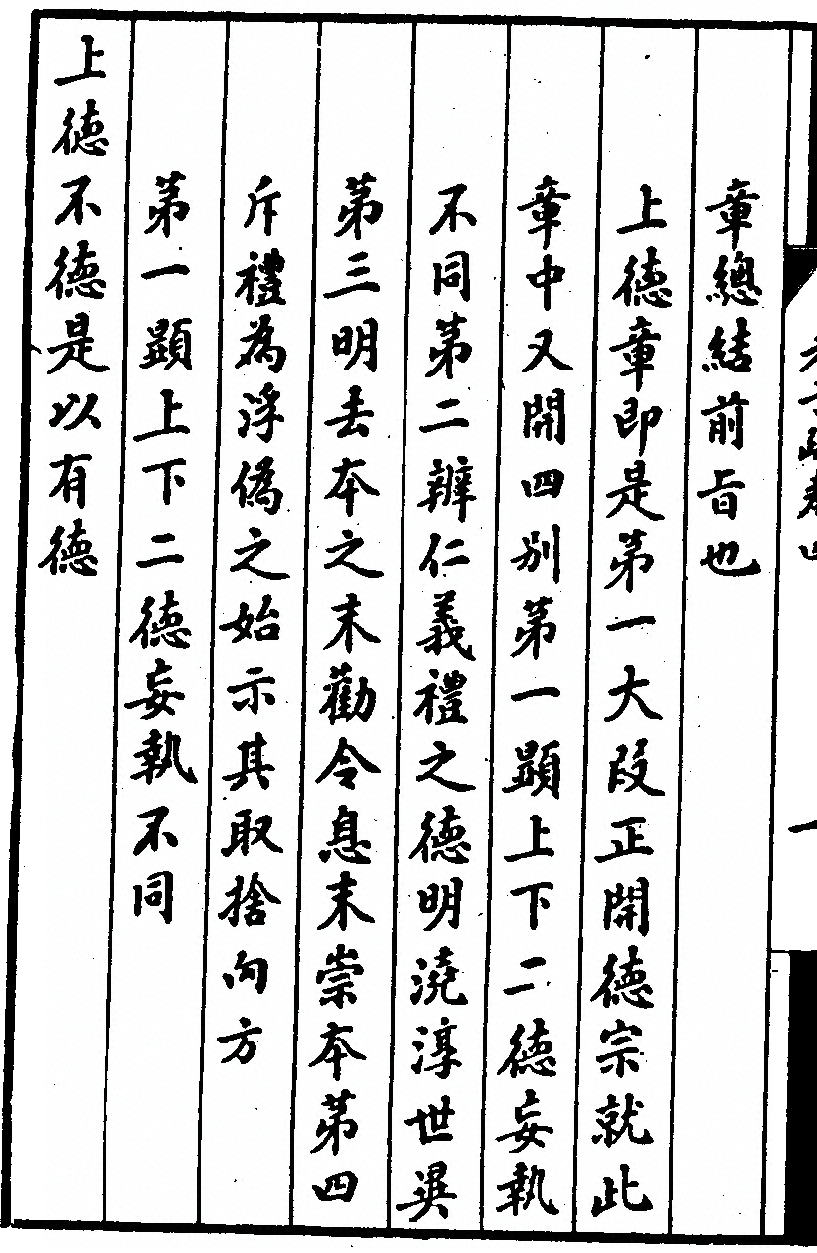 老子疏卷四
一
章總結前旨也
上德章即是第一大段正開德宗就此
章中又開四别第一顯上下二德妄執
不同第二辦仁義禮之德明澆淳世異
第三明去本之末勸令息末崇本第四
斥禮為浮偽之始示其取捨向方
第一顯上下二德妄執不同
上德不德是以有德